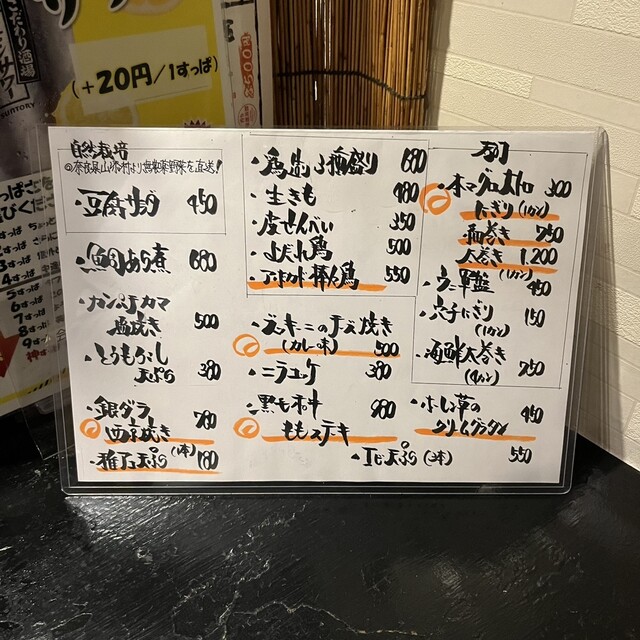 こだわり酒場
SUNTORY
(+20円/1すっぱ)
自然栽培
豆腐サラダ 450
魚あら煮 680
カンパチカマ
塩焼き 500
とうもろこし
天ぷら 380
銀ダラ 780
西京焼き
稚アユ天ぷら(1本) 180
鳥造り3種盛り 680
生きも 480
皮せんべい 350
よだれ鶏 500
アボカド棒々鶏 550
ズッキーニのチーズ焼き
(カレー味) 500
ニラユケ 380
黒毛和牛 980
ももステキ
エビ天ぷら(3本) 550
寿司
本マグロ大トロ 300
にぎり(1カン)
細巻き 750
太巻き 1.200
ウニ軍艦 450
(1カン)
穴子にぎり 150
(1カン)
海鮮太巻き 750
(4カン)
ホレン草の 450
クリームグラタン